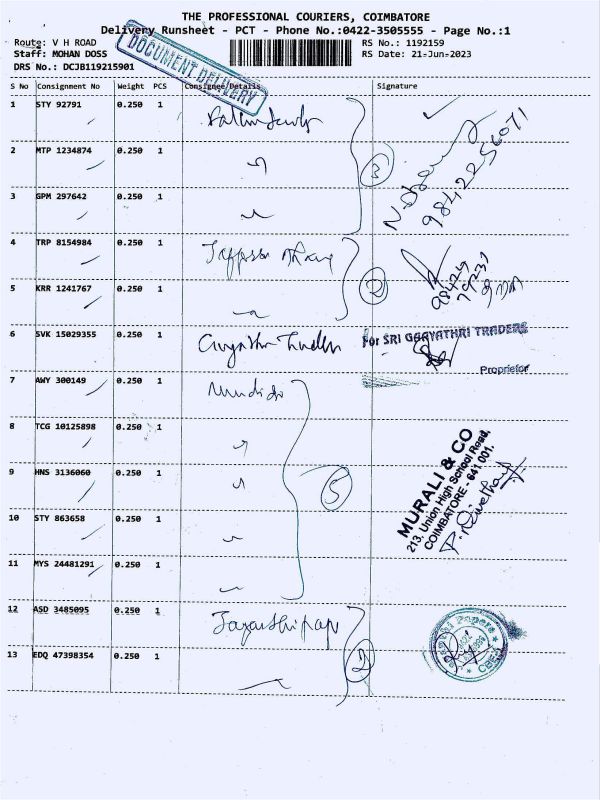 THE PROFESSIONAL COURIERS, COIMBATORE
Delivery Runsheet - PCT - Phone No.:0422-3505555 - Page No.:1
Route: V H ROAD
Staff: MOHAN DOSS
DRS No.: DCJB119215901
RS No.: 1192159
RS Date: 21-Jun-2023
DOCUMENT DELIVERY
S No Consignment No Weight PCS Consignee/Details Signature
1 STY 92791 0.250 1
2 MTP 1234874 0.250 1
3 GPM 297642 0.250 1
3
9842256071
4 TRP 8154984 0.250 1
5 KRR 1241767 0.250 1
2
6 SVK 15029355 0.250 1
for SRI GAAYATHRI TRADERS
Proprietor
7 AWY 300149 0.250 1
8 TCG 10125898 0.250 1
9 HNS 3136060 0.250 1
10 STY 863658 0.250 1
11 MYS 24481291 0.250 1
5
MURALI & CO
213, Union High School Road,
COIMBATORE - 641 001.
12 ASD 3485095 0.250 1
13 EDQ 47398354 0.250 1
2